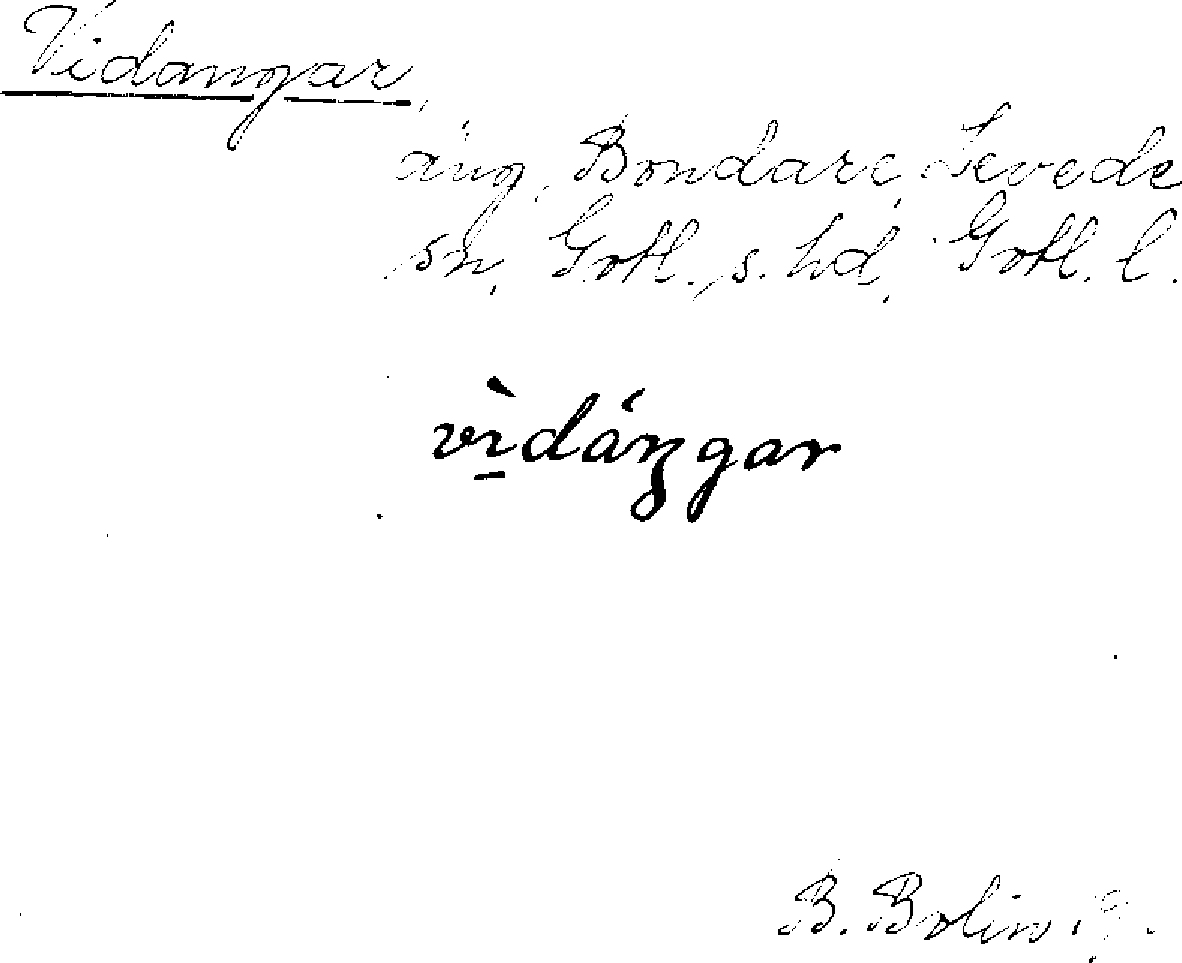 Vidangar,
äng, Bondarve, Levede
sn, Gotl. s. hd, Gotl. l.
vìdáŋgar
B. Bolin